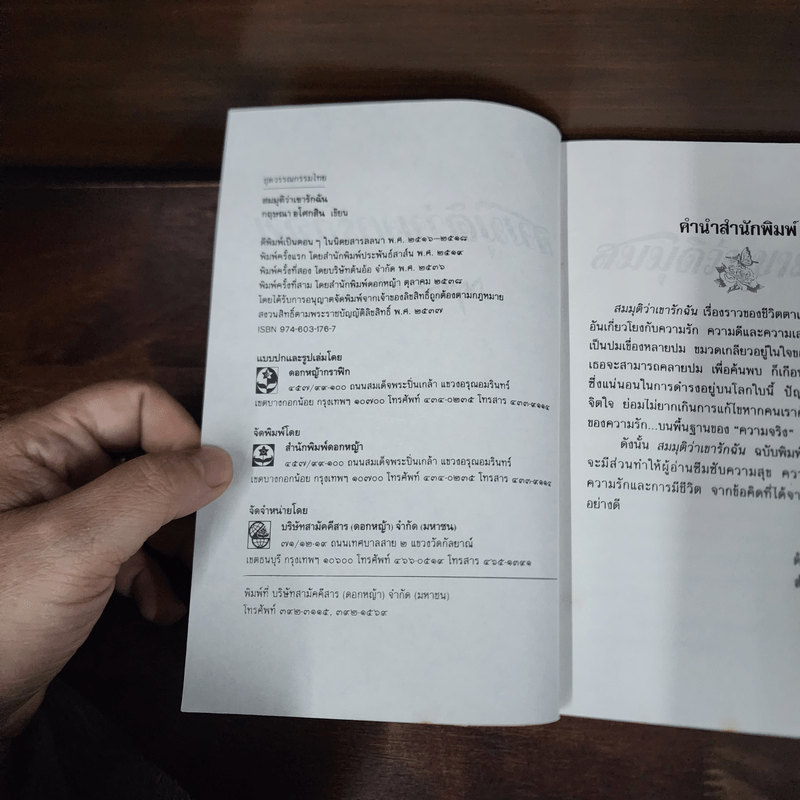 ชุดวรรณกรรมไทย
สมมุติว่าเขารักฉัน
กฤษณา อโศกสิน เขียน
ตีพิมพ์เป็นตอน ๆ ในนิตยสารลลนา พ.ศ. ๒๕๑๖—๒๕๑๘
พิมพ์ครั้งแรก โดยสำนักพิมพ์ประพันธ์สาส์น พ.ศ. ๒๕๑๙
พิมพ์ครั้งที่สอง โดยบริษัทต้นอ้อ จำกัด พ.ศ. ๒๕๓๖
พิมพ์ครั้งที่สาม โดยสำนักพิมพ์ดอกหญ้า ตุลาคม ๒๕๓๘
โดยได้รับการอนุญาตจัดพิมพ์จากเจ้าของลิขสิทธิ์ถูกต้องตามกฎหมาย
สงวนสิทธิ์ตามพระราชบัญญัติลิขสิทธิ์ พ.ศ. ๒๕๓๗
ISBN 974-603-176-7
แบบปกและรูปเล่มโดย
ดอกหญ้ากราฟิก
๔๕๗/๙๙-๑๐๐ ถนนสมเด็จพระปิ่นเกล้า แขวงอรุณอมรินทร์
เขตบางกอกน้อย กรุงเทพฯ ๑๐๗๐๐ โทรศัพท์ ๔๓๔-๐๒๓๕ โทรสาร ๔๓๓-๔๑๑๔
จัดพิมพ์โดย
สำนักพิมพ์ดอกหญ้า
๔๕๗/๙๙-๑๐๐ ถนนสมเด็จพระปิ่นเกล้า แขวงอรุณอมรินทร์
เขตบางกอกน้อย กรุงเทพฯ ๑๐๗๐๐ โทรศัพท์ ๔๓๔-๐๒๓๕ โทรสาร ๔๓๓-๔๑๑๔
จัดจำหน่ายโดย
บริษัทสามัคคีสาร (ดอกหญ้า) จำกัด (มหาชน)
๗๑/๑๒-๑๙ ถนนเทศบาลสาย ๒ แขวงวัดกัลยาณ์
เขตธนบุรี กรุงเทพฯ ๑๐๖๐๐ โทรศัพท์ ๔๖๖-๐๕๑๙ โทรสาร ๔๖๕-๑๓๙๑
พิมพ์ที่ บริษัทสามัคคีสาร (ดอกหญ้า) จำกัด (มหาชน)
โทรศัพท์ ๓๙๒-๓๑๑๕, ๓๙๒-๑๕๖๙
คำนำสำนักพิมพ์
สมมุติว่าเขารักฉัน เรื่องราวของชีวิต
อันเกี่ยวโยงกับความรัก ความดีและ
เป็นปมเขื่องหลายปม ขมวดเกลียวอยู่ในใจ
เธอจะสามารถคลายปม เพื่อค้นพบ
ซึ่งแน่นอนในการดำรงอยู่บนโลกใบนี้
จิตใจ ย่อมไม่ยากเกินการแก้ไขหากคนเรา
ของความรัก...บนพื้นฐานของ “ความจริง”
ดังนั้น สมมุติว่าเขารักฉัน ฉบับพิมพ์
จะมีส่วนทำให้ผู้อ่านซึมซับความสุข
ความรักและการมีชีวิต จากข้อคิดที่ได้
อย่างดี